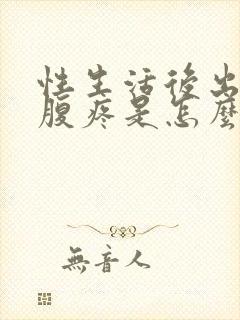 性生活後出
腹疼是怎麼
無音人